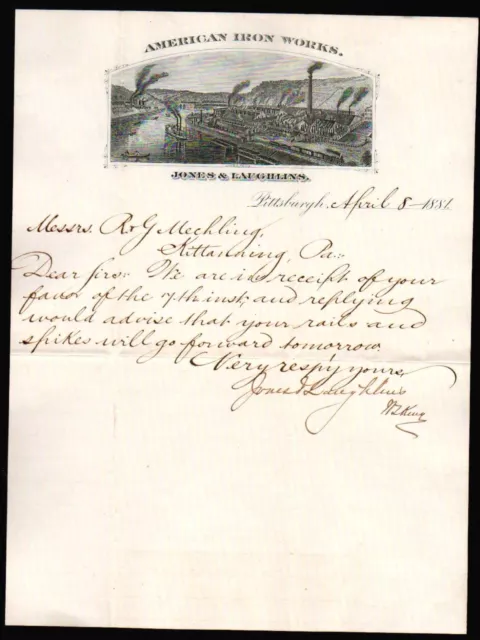 AMERICAN IRON WORKS.
JONES & LAUGHLINS.
Pittsburgh, April 8 - 1881
Messrs. R & G Mechling,
Kittanning, Pa:
Dear Sirs: We are in receipt of your
favor of the 7th inst; and replying
would advise that your rails and
spikes will go forward tomorrow.
Very resp'y yours,
Jones & Laughlins